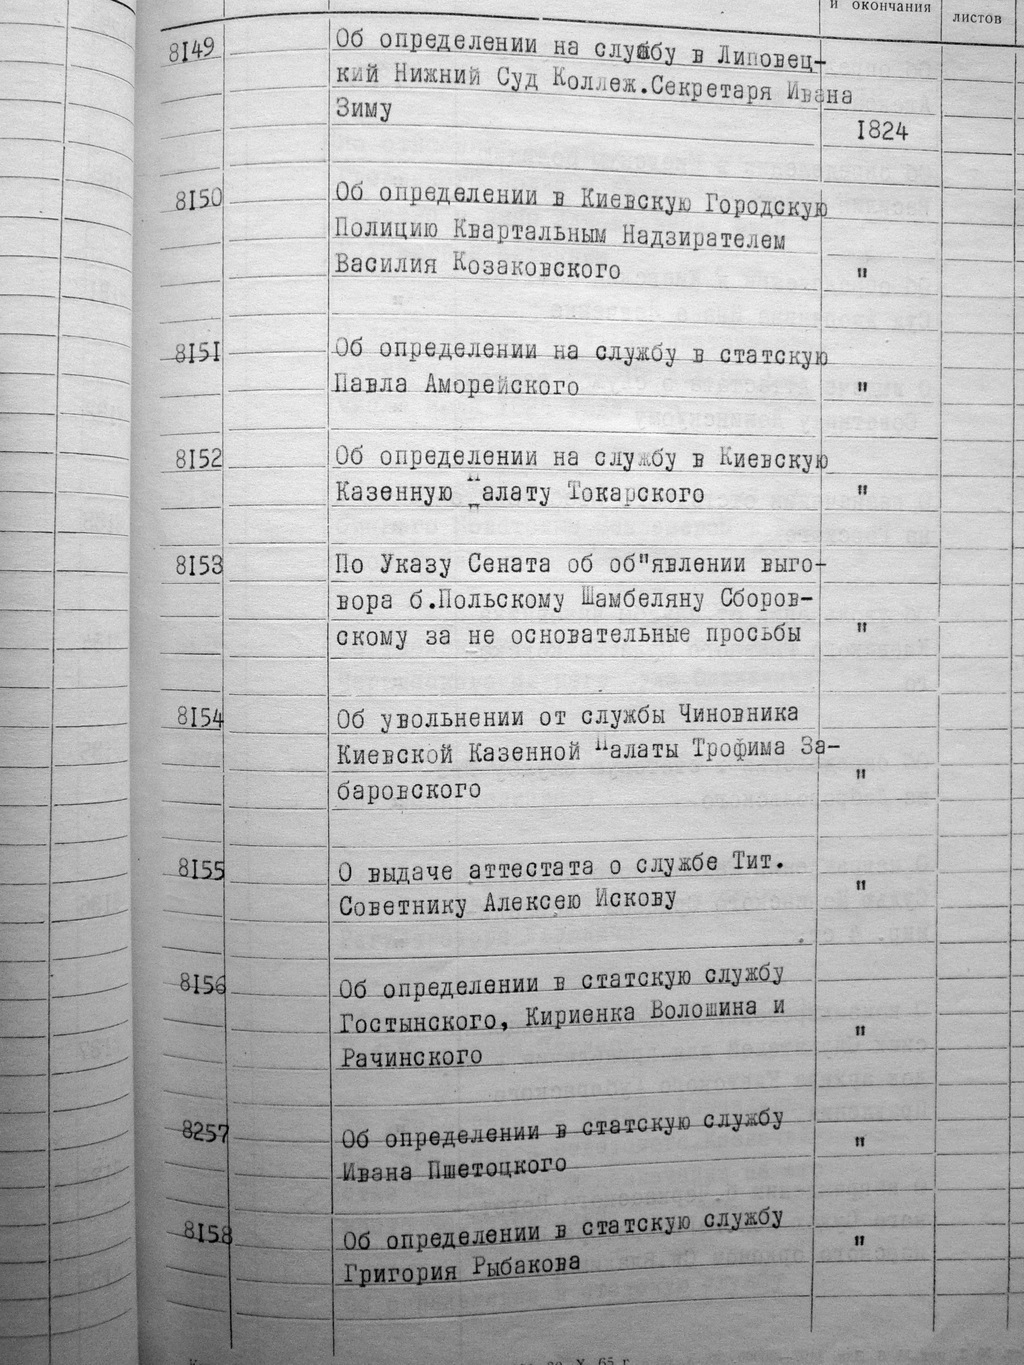 и окончания
листов
8149
Об определении на службу в Липовец-
кий Нижний Суд Коллеж.Секретаря Ивана
Зиму
1824
8150
Об определении в Киевскую Городскую
Полицию Квартальным Надзирателем
Василия Козаковского "
8151
Об определении на службу в статскую
Павла Аморейского "
8152
Об определении на службу в Киевскую
Казенную Палату Токарского "
8153
По Указу Сената об об"явлении выго-
вора б.Польскому Шамбеляну Сборов-
скому за не основательные просьбы "
8154
Об увольнении от службы Чиновника
Киевской Казенной Палаты Трофима За-
баровского "
8155
О выдаче аттестата о службе Тит.
Советнику Алексею Искову "
8156
Об определении в статскую службу
Гостынского, Кириенка Волошина и
Рачинского "
8257
Об определении в статскую службу
Ивана Пшетоцкого "
8158
Об определении в статскую службу
Григория Рыбакова "
X 65 г